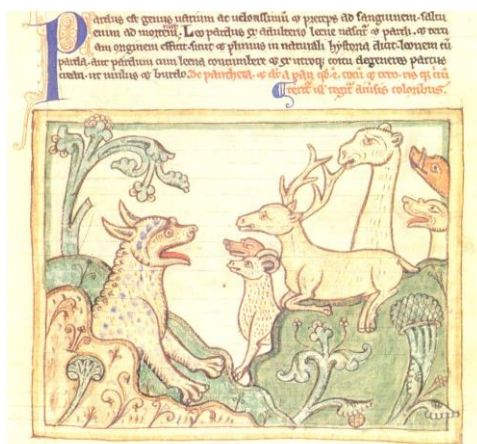 Pardus est genus uarium ac uelocissimū & preceps ad sanguinem. saltu
enim ad mortem ruit. Leo pardus ex adulterio leene nascit & pardi. & terti
am originem efficit. sicut & plinius in naturali hystoria dicit. leonem cū
parda. aut pardum cum leena concumbere & ex utroq; coitu degeneres partus
creari. ut mulus & burdo. De panthera. & a pan
coloribus.